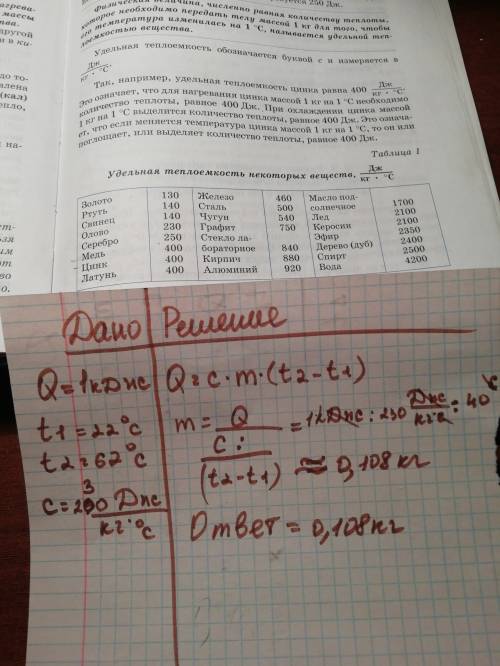 грева-
массы
ства.
другой
и в ки-
до то-
алена
(кал)
епло,
й на-
ет-
ьзя
ким
от
во
о.
ьзуется 250 Дж.
Физическая величина, численно равная количеству теплоты,
которое необходимо передать телу массой 1 кг для того, чтобы
его температура изменилась на 1 °С, называется удельной теп-
лоёмкостью вещества.
Удельная теплоемкость обозначается буквой с и измеряется в
Дж
кг · °С
Так, например, удельная теплоемкость цинка равна 400 Дж
кг · °С
Это означает, что для нагревания цинка массой 1 кг на 1 °С необходимо
количество теплоты, равное 400 Дж. При охлаждении цинка массой
1 кг на 1 °С выделится количество теплоты, равное 400 Дж. Это означа-
ет, что если меняется температура цинка массой 1 кг на 1 °С, то он или
поглощает, или выделяет количество теплоты, равное 400 Дж.
Таблица 1
Удельная теплоемкость некоторых веществ, Дж
кг · °С
Золото 130 Железо 460 Масло под-
Ртуть 140 Сталь 500 солнечное 1700
Свинец 140 Чугун 540 Лед 2100
Олово 230 Графит 750 Керосин 2100
Серебро 250 Стекло ла- Эфир 2350
Медь 400 бораторное 840 Дерево (дуб) 2400
Цинк 400 Кирпич 880 Спирт 2500
Латунь 400 Алюминий 920 Вода 4200
Дано Решение
Q = 1кДж Q = c · m · (t2 - t1)
t1 = 22°C m = Q
c :
(t2-t1)
= 1кДж : 230 Дж
кг·°c
: 40°C
t2 = 62°C ≈ 0,108 кг
c = 230 Дж
кг·°C
Ответ = 0,108кг